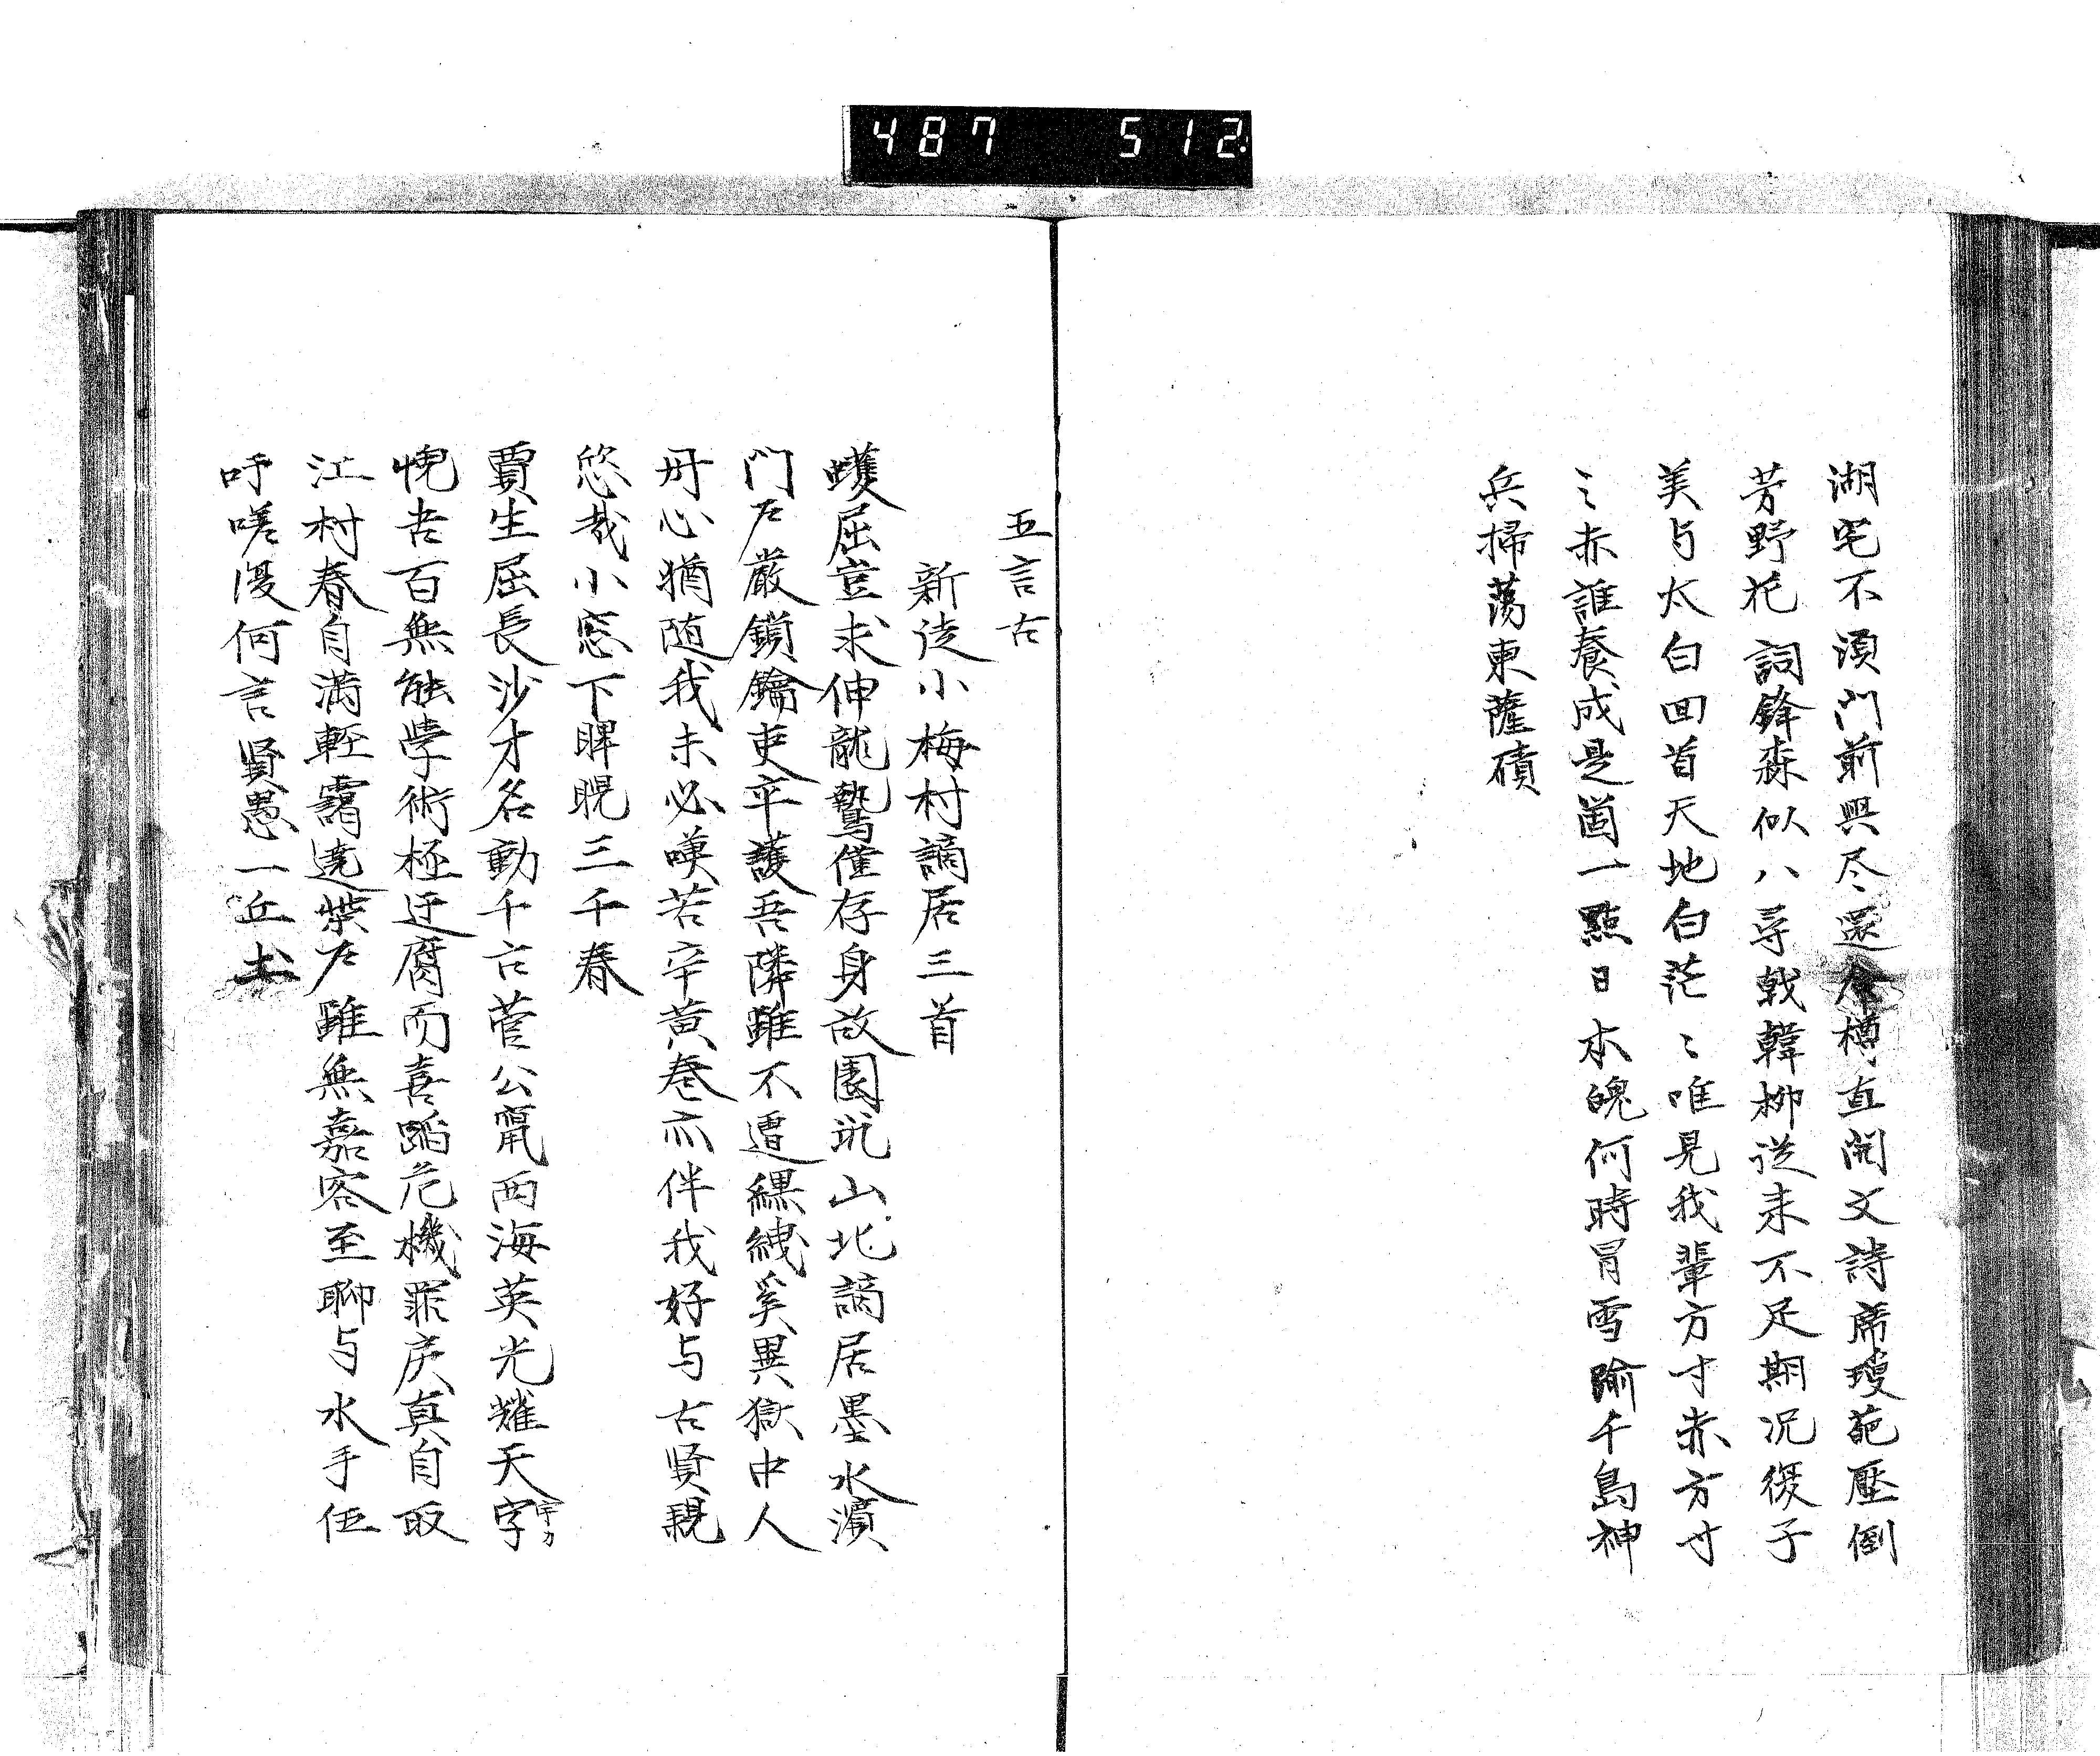 487 512
湖宅不須門前興尽還傘樽直開文詩席瓊葩壓倒
芳野花詞鋒森似八尋戟韓柳從来不足期况復子
美与太白回首天地白茫〻唯見我輩方寸赤方寸
〻赤誰養成是箇一點日本魄何時冒雪踰千島神
兵掃蕩東薩磧
五言古
新徒小梅村謫居三首
蠖屈豈求伸龍蟄僅存身故園沉山北謫居墨水濱
門戸嚴鎖鑰吏卒護吾隣雖不遭縲絏奚異獄中人
丹心猶随我未必嘆苦辛黄巻亦伴我好与古賢親
悠哉小窓下睥睨三千春
賈生屈長沙才名動千古菅公竄西海英光耀天字宇カ
愧吾百無能學術極迂腐而喜蹈危機罪戻真自取
江村春自満輕靄遶柴戸雖無嘉客至聊与水手伍
吁嗟復何言賢愚一丘土